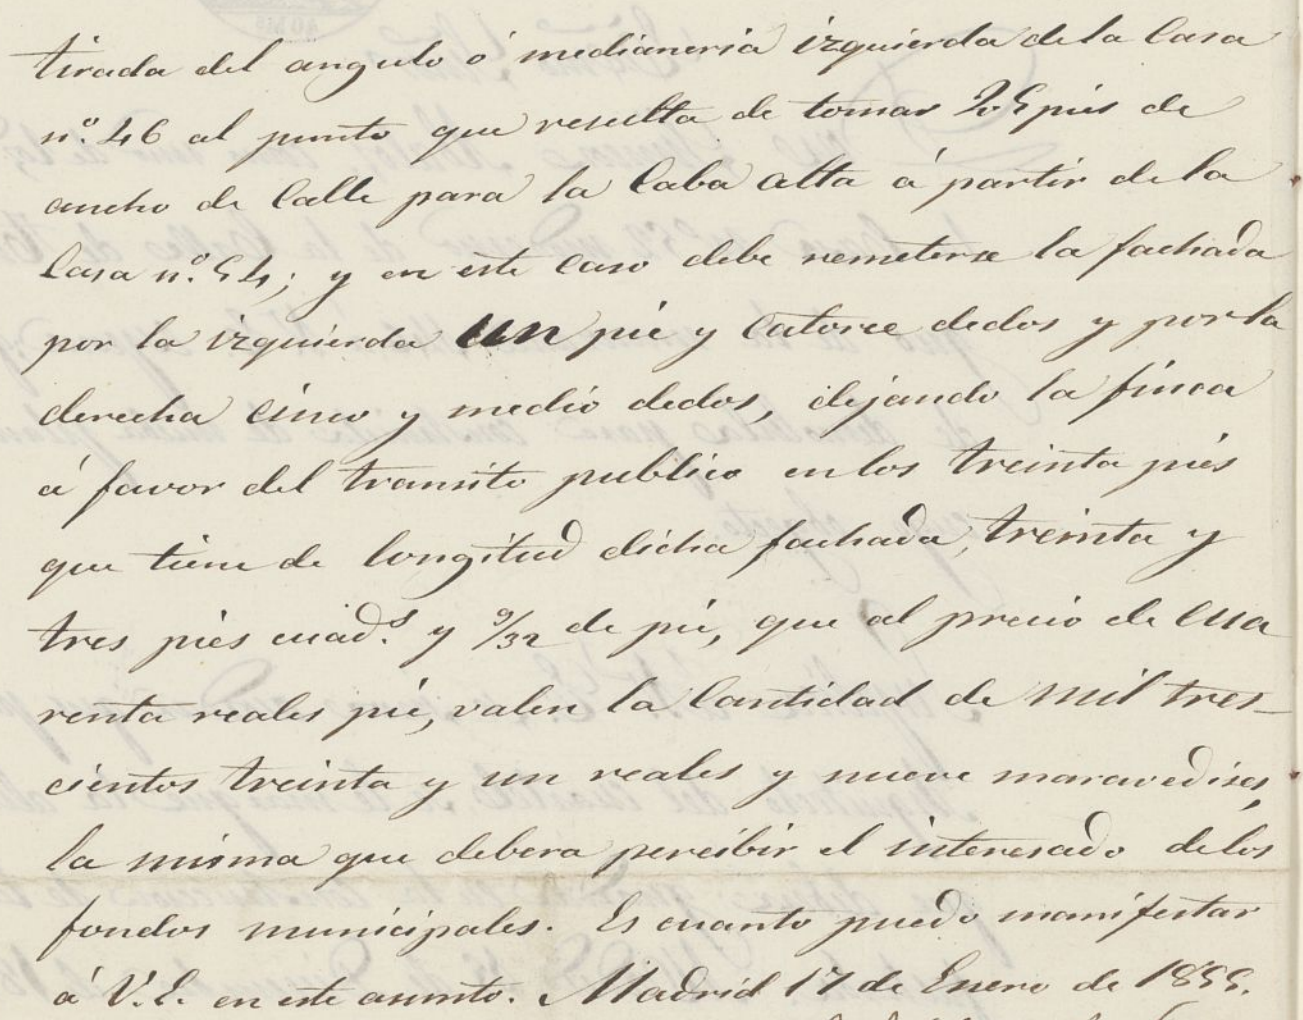 tirada del angulo ó medianeria izquierda de la Casa
nº. 46 al punto que resulta de tomar 20 5 pies de
ancho de Calle para la Caba alta á partir de la
Casa nº. 54; y en este caso debe remeterse la fachada
por la izquierda un pie y catorce dedos y por la
derecha cinco y medio dedos, dejando la finca
á favor del transito publico en los treinta pies
que tiene de longitud dicha fachada, treinta y
tres pies cuad.s y 9/32 de pie, que al precio de cua
renta reales pie, valen la Cantidad de mil tres-
cientos treinta y un reales y nueve maravedises,
la misma que debera percibir el interesado de los
fondos municipales. Es cuanto puedo manifestar
á V.E. en este asunto. Madrid 17 de Enero de 1855.